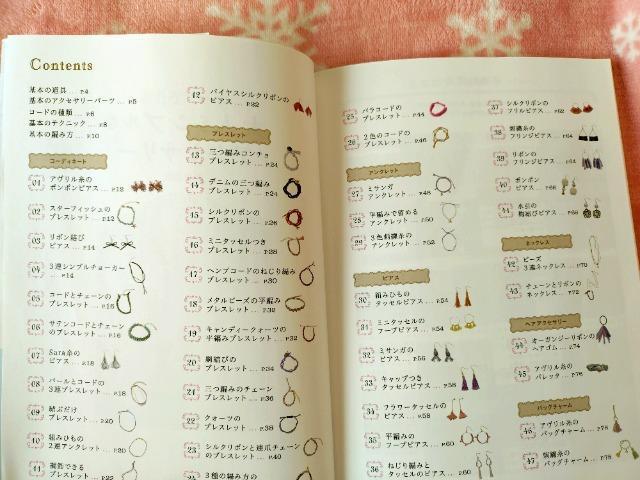 Contents
基本の道具 … P.4
基本のアクセサリーパーツ … P.5
コードの種類 … P.6
基本のテクニック … P.8
基本の編み方 … P.10
コーディネート
01 アヴリル糸の
ポンポンピアス … P.12
02 スターフィッシュの
ブレスレット … P.12
03 リボン結び
ピアス … P.14
04 3連シンプルチョーカー
… P.14
05 コードとチェーンの
ブレスレット … P.15
06 サテンコードとチェーン
のブレスレット … P.16
07 Sara糸の
ピアス … P.18
08 パールとコードの
3連ブレスレット … P.18
09 結ぶだけ
ブレスレット … P.20
10 組みひもの
2連アンクレット … P.20
11 調節できる
ブレスレット … P.22
12 バイヤスシルクリボンの
ピアス … P.22
ブレスレット
13 三つ編みコンチョ
ブレスレット … P.24
14 デニムの三つ編み
ブレスレット … P.24
15 シルクリボンの
ブレスレット … P.26
16 ミニタッセルつき
ブレスレット … P.28
17 ヘンプコードのねじり編み
ブレスレット … P.30
18 メタルビーズの平編み
ブレスレット … P.32
19 キャンディークォーツの
平編みブレスレット … P.32
20 網結びの
ブレスレット … P.34
21 三つ編みのチェーン
ブレスレット … P.36
22 クォーツの
ブレスレット … P.38
23 シルクリボンと連爪チェーン
のブレスレット … P.40
3種の編み方の
25 パラコードの
ブレスレット … P.44
26 2色のコードの
ブレスレット … P.46
アンクレット
27 ミサンガ
アンクレット … P.48
28 平編みで留める
アンクレット … P.50
29 3色刺繍糸の
アンクレット … P.52
ピアス
30 組みひもの
タッセルピアス … P.54
31 ミニタッセルの
フープピアス … P.54
32 ミサンガの
ピアス … P.56
33 キャップつき
タッセルピアス … P.58
34 フラワータッセルの
ピアス … P.58
35 平編みの
フープピアス … P.60
36 ねじり編みと
タッセルのピアス … P.60
37 シルクリボンの
フリルピアス … P.62
38 刺繍糸の
フリンジピアス … P.64
39 リボンの
フリンジピアス … P.64
40 ポンポン
ピアス … P.66
41 水引の
梅結びピアス … P.68
ネックレス
42 ビーズ
3連ネックレス … P.70
43 チェーンとリボンの
ネックレス … P.72
ヘアアクセサリー
44 オーガンジーリボンの
ヘアゴム … P.74
45 アヴリル糸の
バレッタ … P.76
バッグチャーム
46 アヴリル糸の
バッグチャーム … P.78
47 刺繍糸の
バッグチャーム … P.78